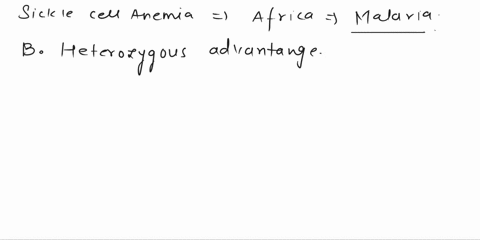 Sickle cell Anemia => Africa => Malaria.
B. Heterozygous advantange.